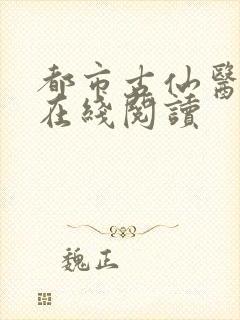 都市古仙醫
在綫閱讀
魏正